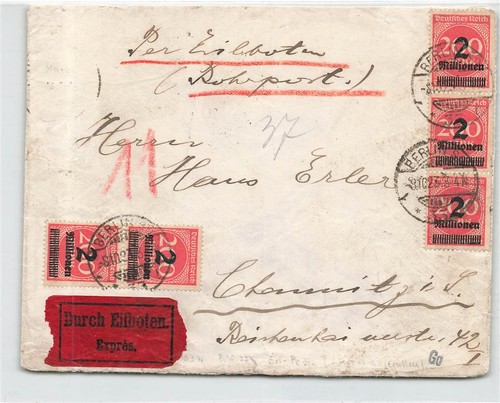 Deutsches Reich
200
2
Millionen
Per Eilboten
(Rohrpost.)
BERLIN
200
2
Millionen
37
Herrn
11
Hans Erler
BERLIN
200
2
Millionen
BERLIN
200
2
Millionen
200
2
Millionen
Chemnitz i. S.
Durch Eilboten.
Exprès.
42
I
Go